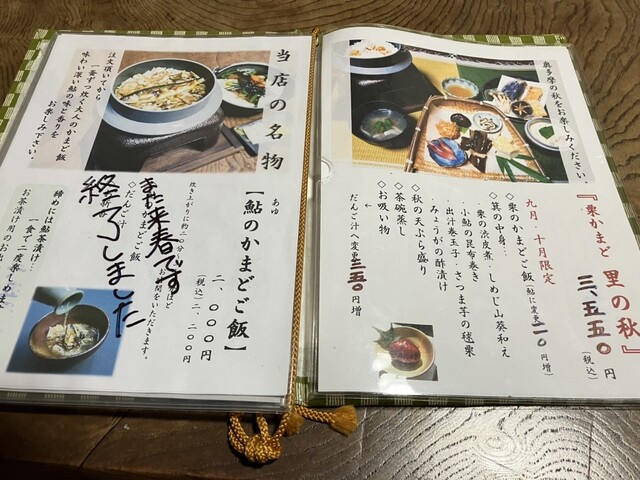 奥多摩の秋をお楽しみください。
『栗かまど 里の秋』
三、五五〇円
(税込)
九月・十月限定
◇栗のかまどご飯(鮎に変更二一〇円増)
◇箕の中身…
栗の渋皮煮・しめじ山葵和え
・小鮎の昆布巻き
・出汁巻玉子・さつま芋の毬栗
・みょうがの酢漬け
◇秋の天ぷら盛り
◇茶碗蒸し
◇お吸い物
←
だんご汁へ変更三五〇円増
当店の名物
注文頂いてから
一釜ずつ炊く大人のかまど飯
味わい深い鮎の味と香りを
お楽しみ下さい。
あゆ
【鮎のかまどご飯】
二、〇〇〇円
(税込)二、二〇〇円
炊き上がりに約二〇分ほど
お時間をいただきます。
◇かまどご飯
◇だんご汁
◇お新香
また来春です
終了しました
締めには鮎茶漬け…
一食で二度楽しめま
お茶漬け用のお出